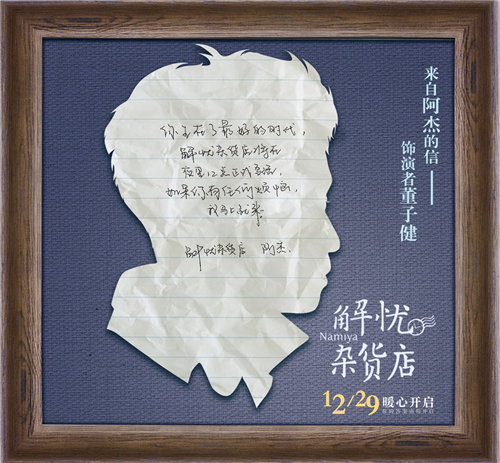 来自阿杰的信——
饰演者董子健
你生在了最好的时代,
解忧杂货店将在
夜里12点正式复活,
如果你有任何烦恼,
解忧杂货店 阿杰.
解忧
Namiya
杂货店
12/29 暖心开启